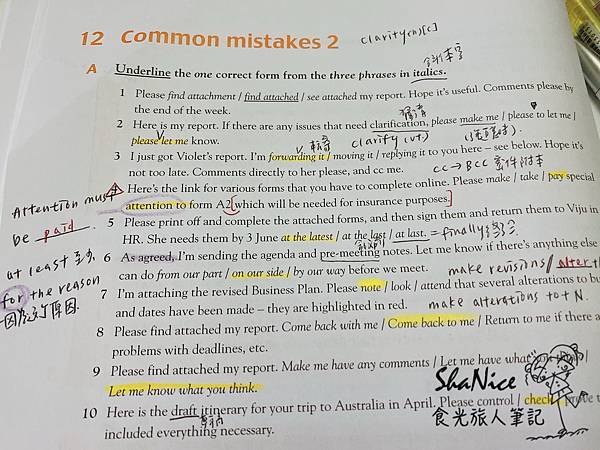 12 Common mistakes 2
clarity(n)[c]
A Underline the one correct form from the three phrases in italics.
斜体字
1 Please find attachment / find attached / see attached my report. Hope it's useful. Comments please by
the end of the week.
2 Here is my report. If there are any issues that need clarification, please make me / please to let me /
please let me know.
clarify (vt)
3 I just got Violet's report. I'm forwarding it / moving it / replying it to you here – see below. Hope it's
not too late. Comments directly to her please, and cc me.
CC → BCC
4 Here's the link for various forms that you have to complete online. Please make / take / pay special
attention to form A2 which will be needed for insurance purposes.
Attention must
be paid.
5 Please print off and complete the attached forms, and then sign them and return them to Viju in
HR. She needs them by 3 June at the latest / at the last / at last.
= finally
at least 至少
6 As agreed, I'm sending the agenda and pre-meeting notes. Let me know if there's anything else
can do from our part / on our side / by our way before we meet.
for the reason
make revisions/ alter
7 I'm attaching the revised Business Plan. Please note / look / attend that several alterations to bu
and dates have been made – they are highlighted in red.
make alterations to + N.
8 Please find attached my report. Come back with me / Come back to me / Return to me if there a
problems with deadlines, etc.
9 Please find attached my report. Make me have any comments / Let me have what
Let me know what you think.
ShaNice
食光旅人筆記
10 Here is the draft itinerary for your trip to Australia in April. Please control / check
included everything necessary.
草稿